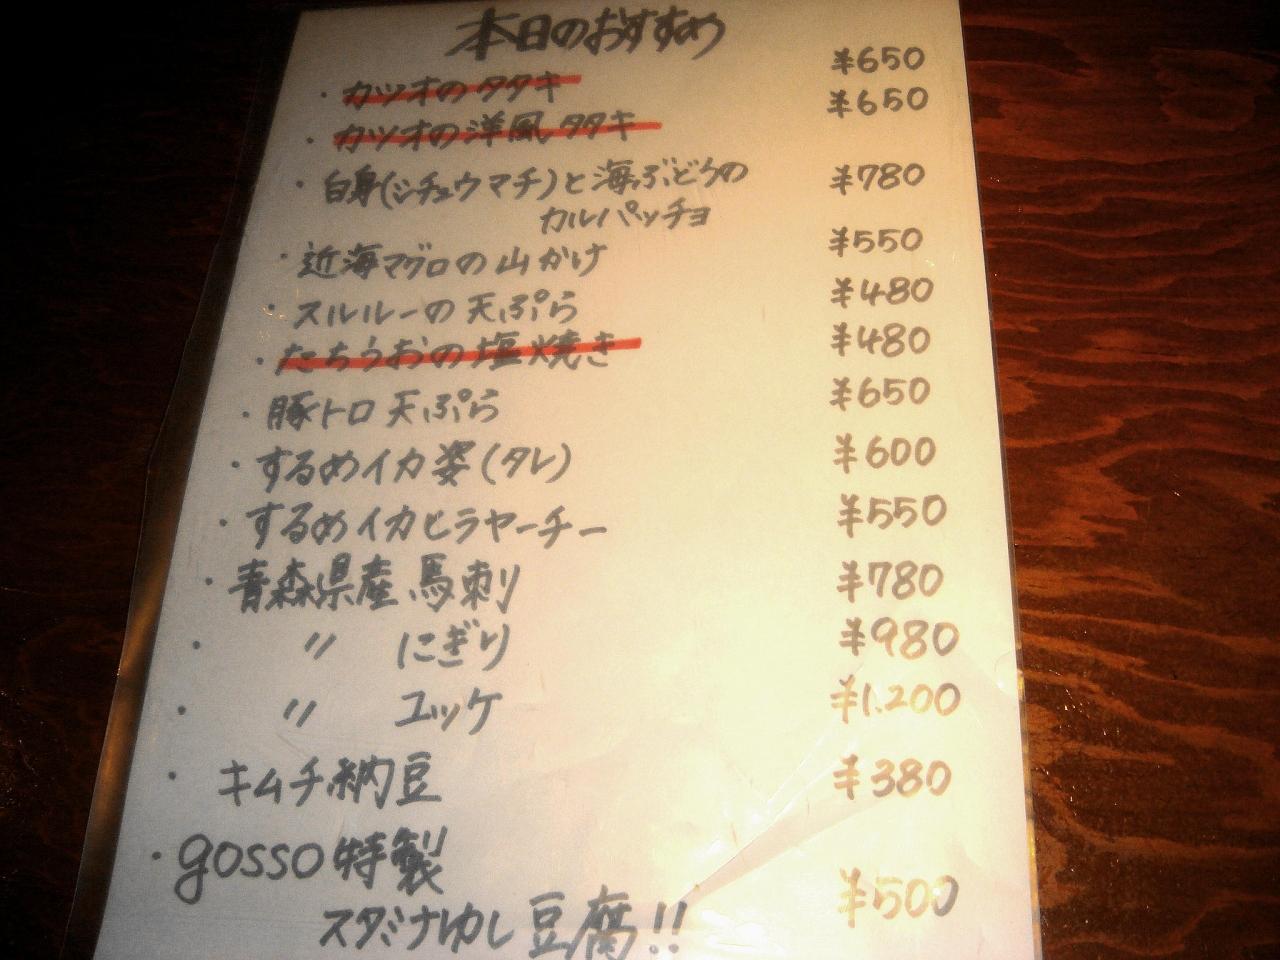 本日のおすすめ
・カツオのタタキ ¥650
・カツオの洋風タタキ ¥650
・白身(シチュウマチ)と海ぶどうの ¥780
カルパッチョ
・近海マグロの山かけ ¥550
・スルルーの天ぷら ¥480
・たちうおの塩焼き ¥480
・豚トロ天ぷら ¥650
・するめイカ姿(タレ) ¥600
・するめイカヒラヤーチー ¥550
・青森県産馬刺 ¥780
・〃 にぎり ¥980
・〃 ユッケ ¥1.200
・キムチ納豆 ¥380
・gosso特製
スタミナゆし豆腐!! ¥500